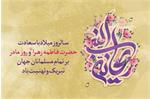 سالروز میلاد با سعادت
حضرت فاطمه زهرا و روز مادر
بر تمام مسلمانان جهان
تبریک و تهنیت باد